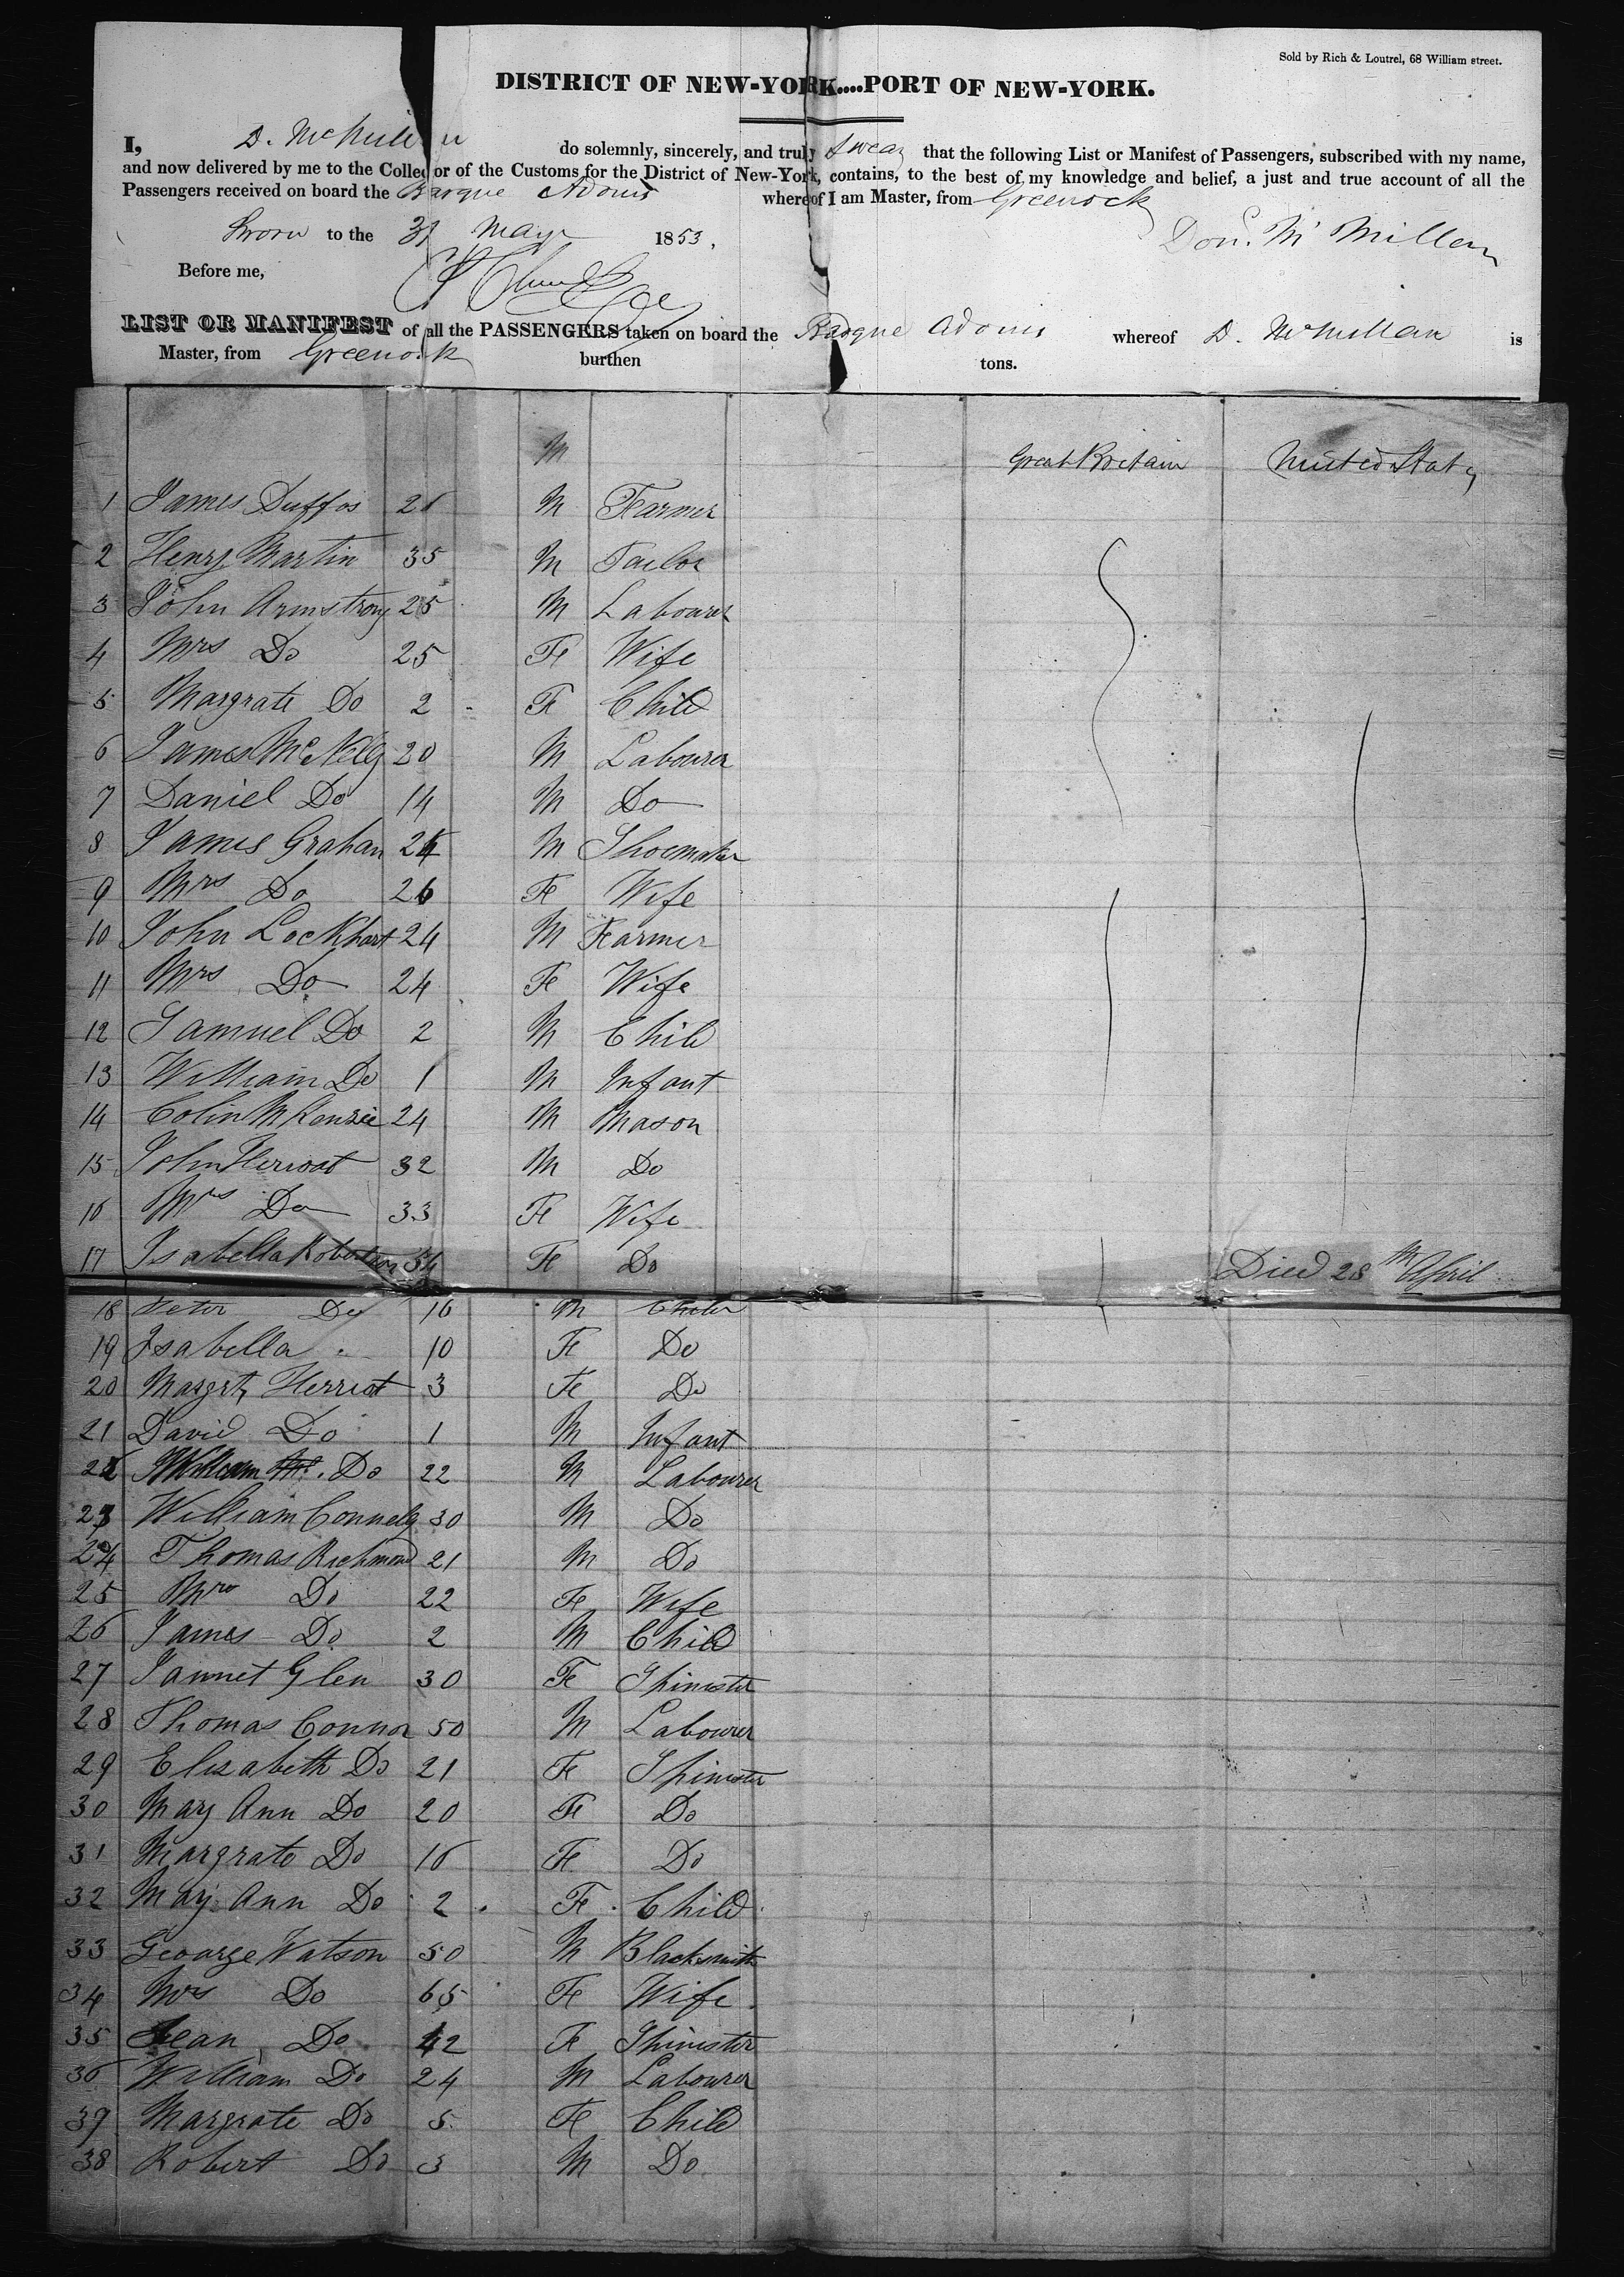 Sold by Rich & Loutrel, 68 William street.
DISTRICT OF NEW-YORK....PORT OF NEW-YORK.
I, D. McMillan do solemnly, sincerely, and truly swear that the following List or Manifest of Passengers, subscribed with my name,
and now delivered by me to the Collector of the Customs for the District of New-York, contains, to the best of my knowledge and belief, a just and true account of all the
Passengers received on board the Barque Adonis whereof I am Master, from Greenock
Sworn to the 31 May 1853. Don. McMillan
Before me,
LIST OR MANIFEST of all the PASSENGERS taken on board the Barque Adonis whereof D. McMillan is
Master, from Greenock burthen tons.
M Great Britain United States
1 James Duffos 26 M Farmer
2 Henry Martin 35 M Tailor
3 John Armstrong 25 M Labourer
4 Mrs Do 25 Fe Wife
5 Margrate Do 2 Fe Child
6 James McNelly 20 M Labourer
7 Daniel Do 14 M Do
8 James Graham 24 M Shoemaker
9 Mrs Do 26 Fe Wife
10 John Lockhart 24 M Farmer
11 Mrs Do 24 Fe Wife
12 Samuel Do 2 M Child
13 William Do 1 M Infant
14 Colin McKenzie 24 M Mason
15 John Herriot 32 M Do
16 Mrs Do 33 Fe Wife
17 Isabella Robertson 54 Fe Do Died 28th April
18 Peter Do 16 M Child
19 Isabella " 10 Fe Do
20 Margrt Herriot 3 Fe Do
21 David Do 1 M Infant
22 William Do 22 M Labourer
23 William Connely 30 M Do
24 Thomas Richmond 21 M Do
25 Mrs Do 22 Fe Wife
26 James Do 2 M Child
27 Jannet Glen 30 Fe Spinister
28 Thomas Connor 50 M Labourer
29 Elisabeth Do 21 Fe Spinister
30 Mary Ann Do 20 Fe Do
31 Margrate Do 16 Fe Do
32 Mary Ann Do 2 Fe Child
33 George Watson 50 M Blacksmith
34 Mrs Do 65 Fe Wife
35 Jean Do 42 Fe Spinister
36 William Do 24 M Labourer
37 Margrate Do 5 Fe Child
38 Robert Do 3 M Do